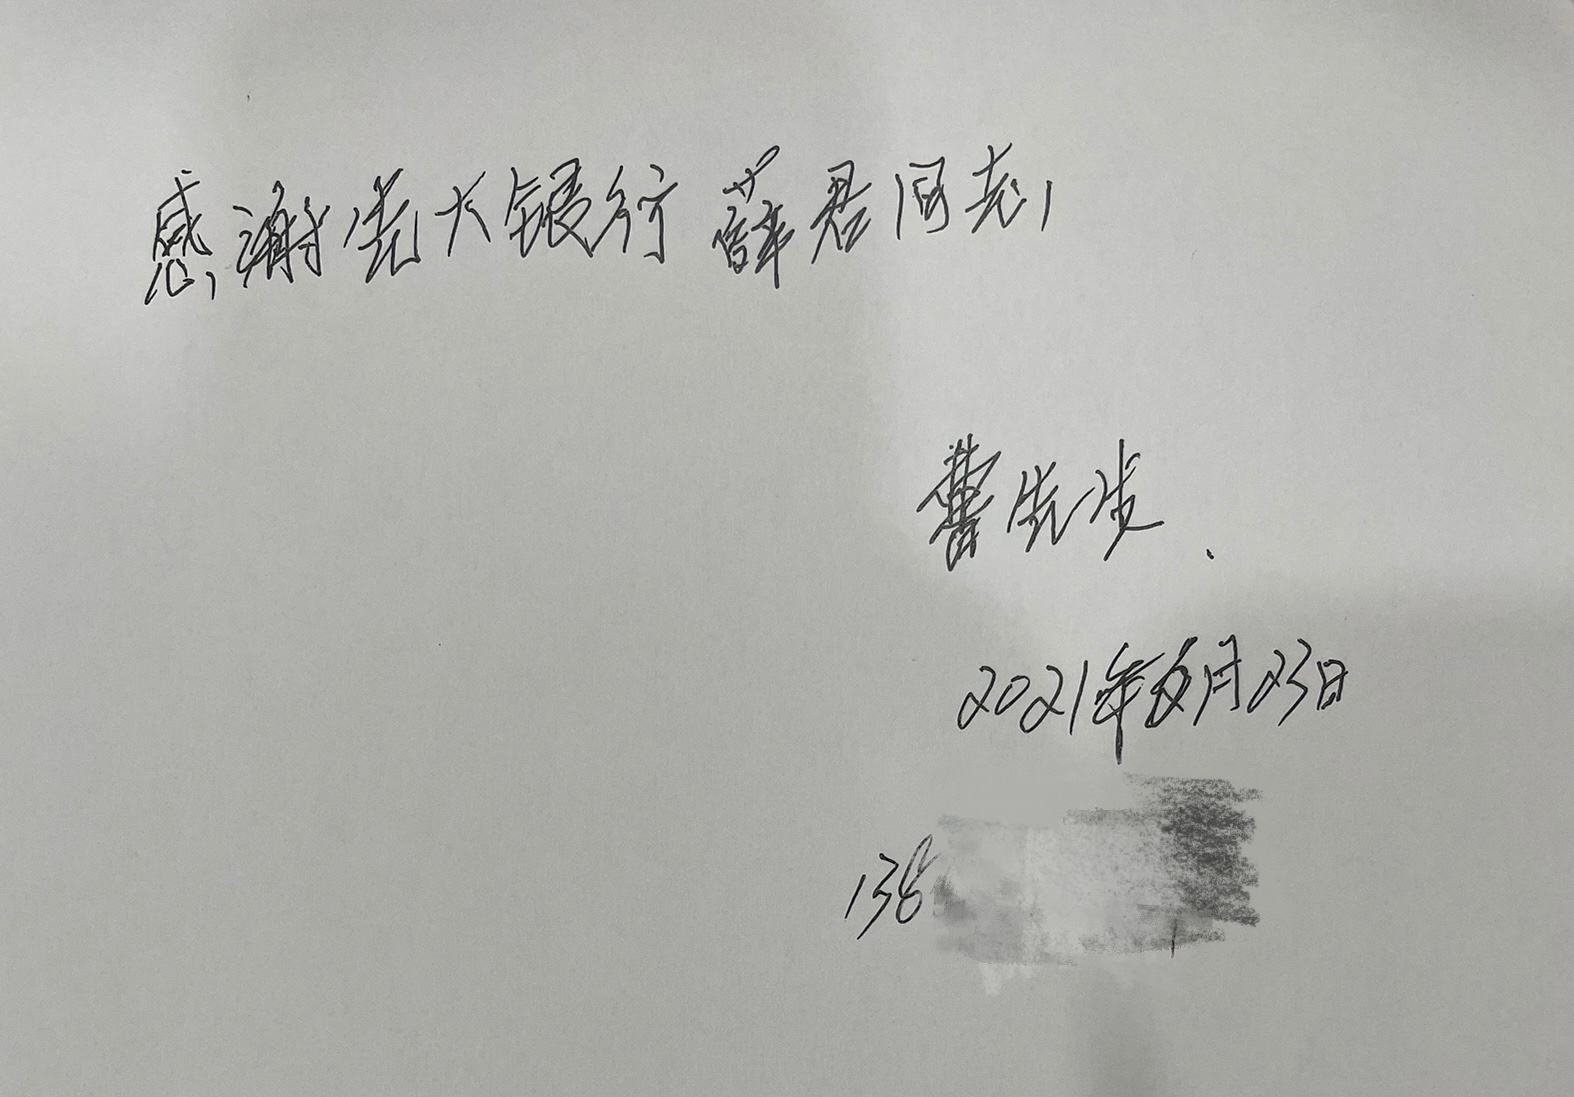 感谢光大银行薛君同志
曹先生
2021年6月23日
138